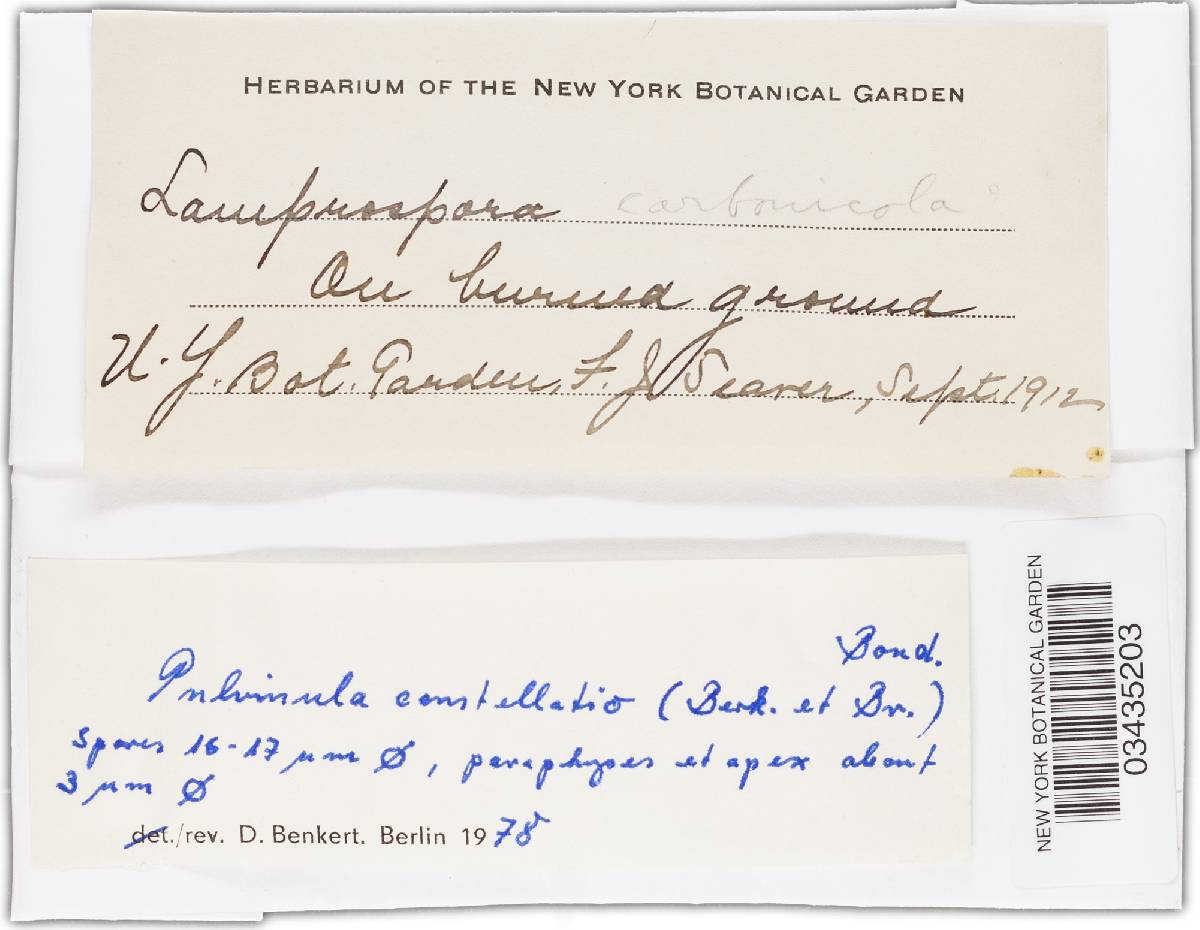 HERBARIUM OF THE NEW YORK BOTANICAL GARDEN
Lamprospora carbonicola
On burned ground
N.Y. Bot. Garden, F. J. Seaver, Sept. 1912
Bond.
Pulvinula constellatio (Berk. et Br.)
Spores 16-17 µm Ø, paraphyses et apex about
3 µm Ø
det./rev. D. Benkert. Berlin 1978
NEW YORK BOTANICAL GARDEN
03435203